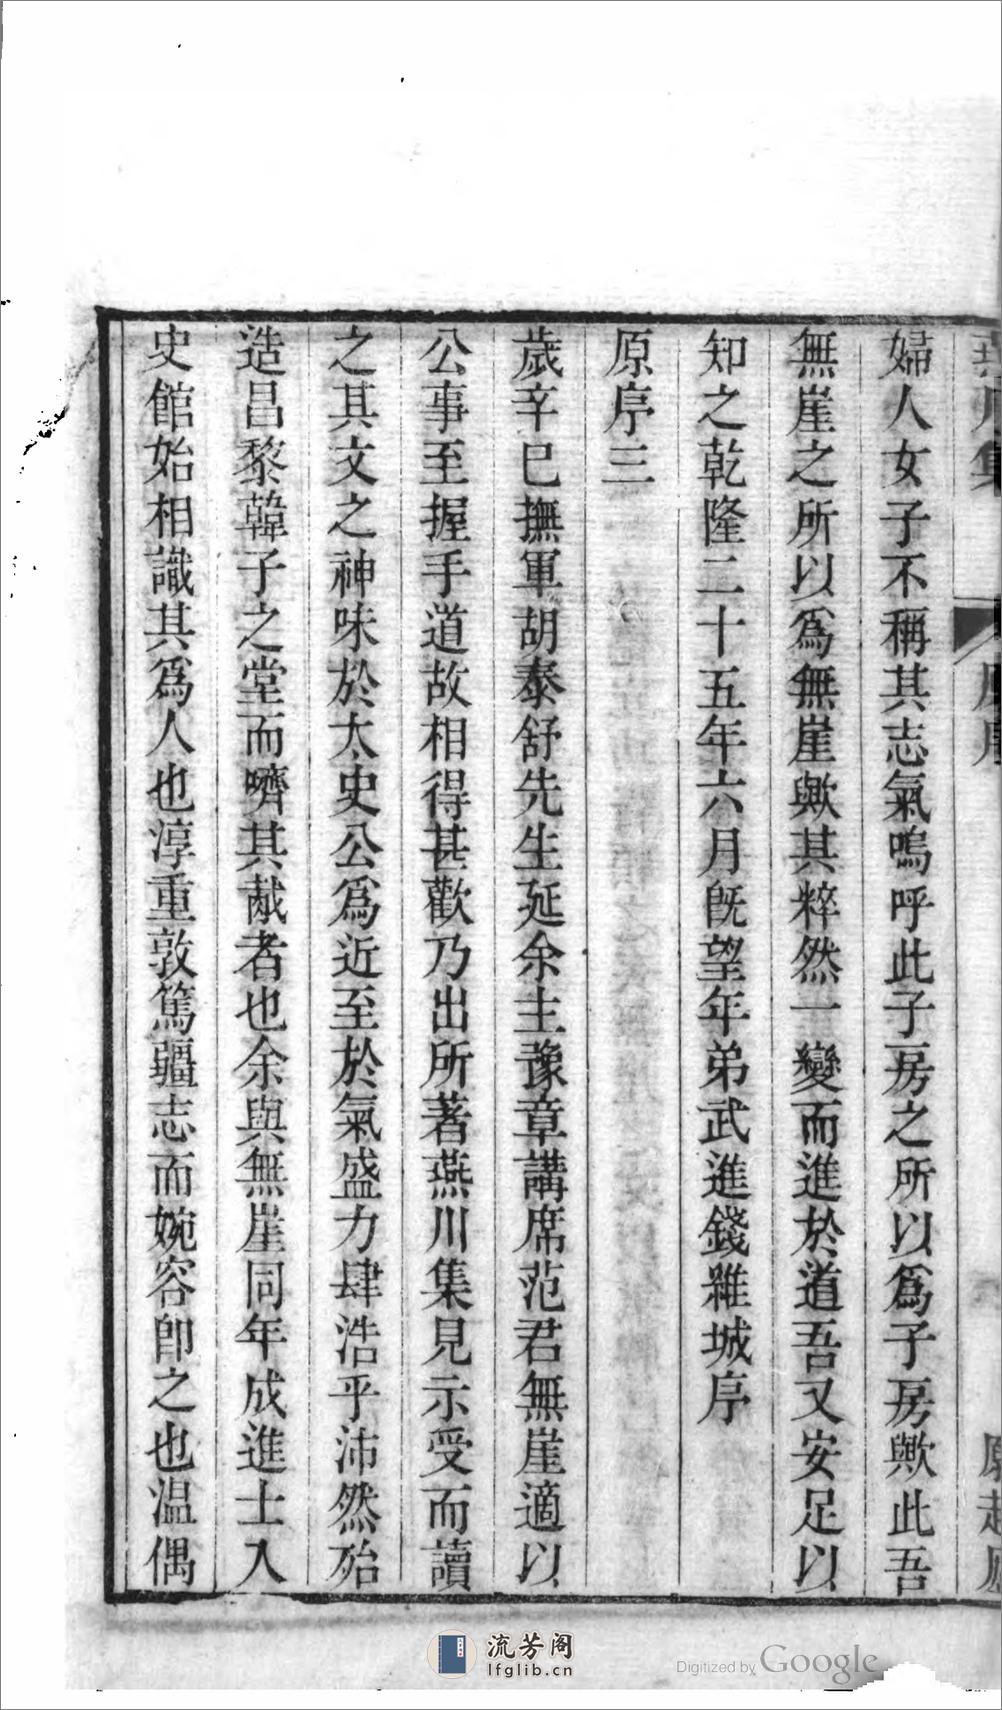 婦人女子不稱其志氣嗚呼此子房之所以爲子房歟此吾
無崖之所以爲無崖歟其粹然一變而進於道吾又安足以
知之乾隆二十五年六月旣望年弟武進錢維城序
原序三
歲辛巳撫軍胡泰舒先生延余主豫章講席范君無崖適以
公事至握手道故相得甚歡乃出所著燕川集見示受而讀
之其文之神味於太史公爲近至於氣盛力肆浩乎沛然殆
造昌黎韓子之堂而嚌其胾者也余與無崖同年成進士入
史館始相識其爲人也淳重敦篤疆志而婉容卽之也温偶
流芳阁
lfglib.cn
Digitized by Google